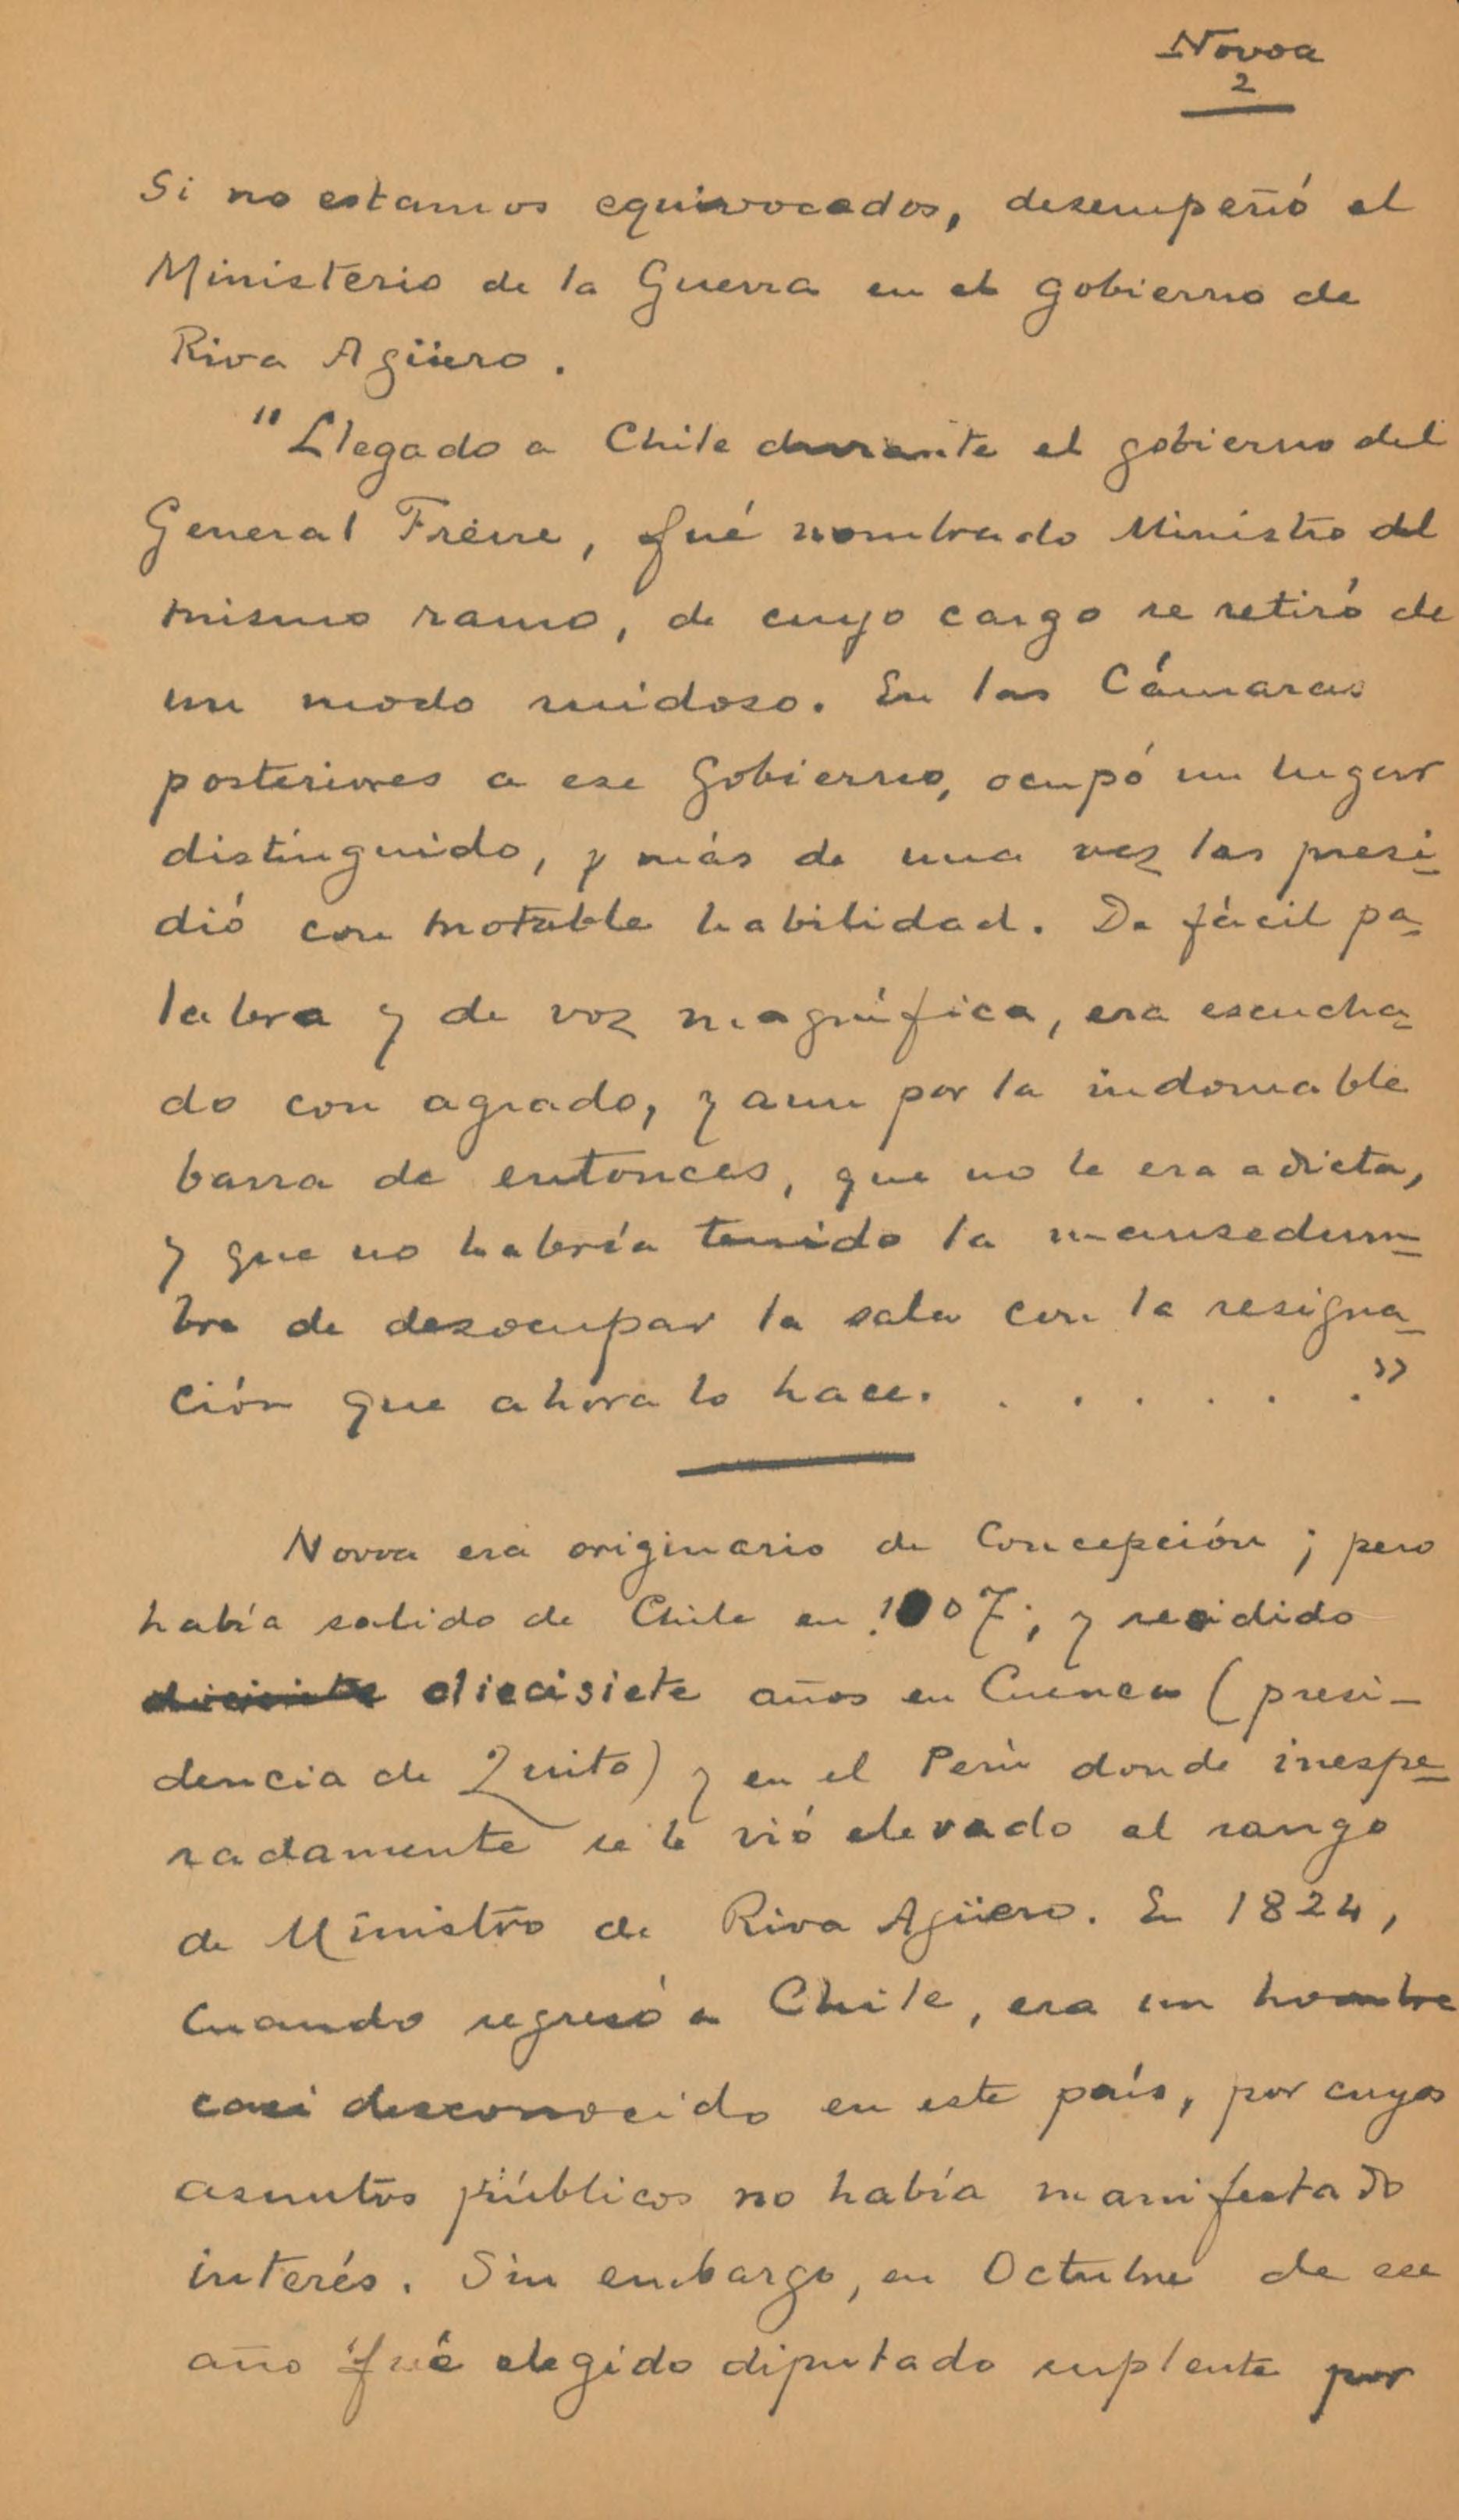 Novoa
2
Si no estamos equivocados, desempeñó el
Ministerio de la Guerra en el gobierno de
Riva Agüero.
"Llegado a Chile durante el gobierno del
General Freire, fué nombrado Ministro del
mismo ramo, de cuyo cargo se retiró de
un modo ruidoso. En las Cámaras
posteriores a ese Gobierno, ocupó un lugar
distinguido, y más de una vez las presi-
dió con notable habilidad. De fácil pa-
labra y de voz magnífica, era escucha-
do con agrado, y aun por la indomable
barra de entonces, que no le era adicta,
y que no habría tenido la mansedum-
bre de desocupar la sala con la resigna-
ción que ahora lo hace. . . . . . ."
Novoa era originario de Concepción; pero
había salido de Chile en 1807; y residido
diecisiete años en Cuenca (presi-
dencia de Quito) y en el Perú donde inespe-
radamente se le vió elevado al rango
de Ministro de Riva Agüero. En 1824,
cuando regresó a Chile, era un hombre
casi desconocido en este país, por cuyos
asuntos públicos no había manifestado
interés. Sin embargo, en Octubre de ese
año fué elegido diputado suplente por